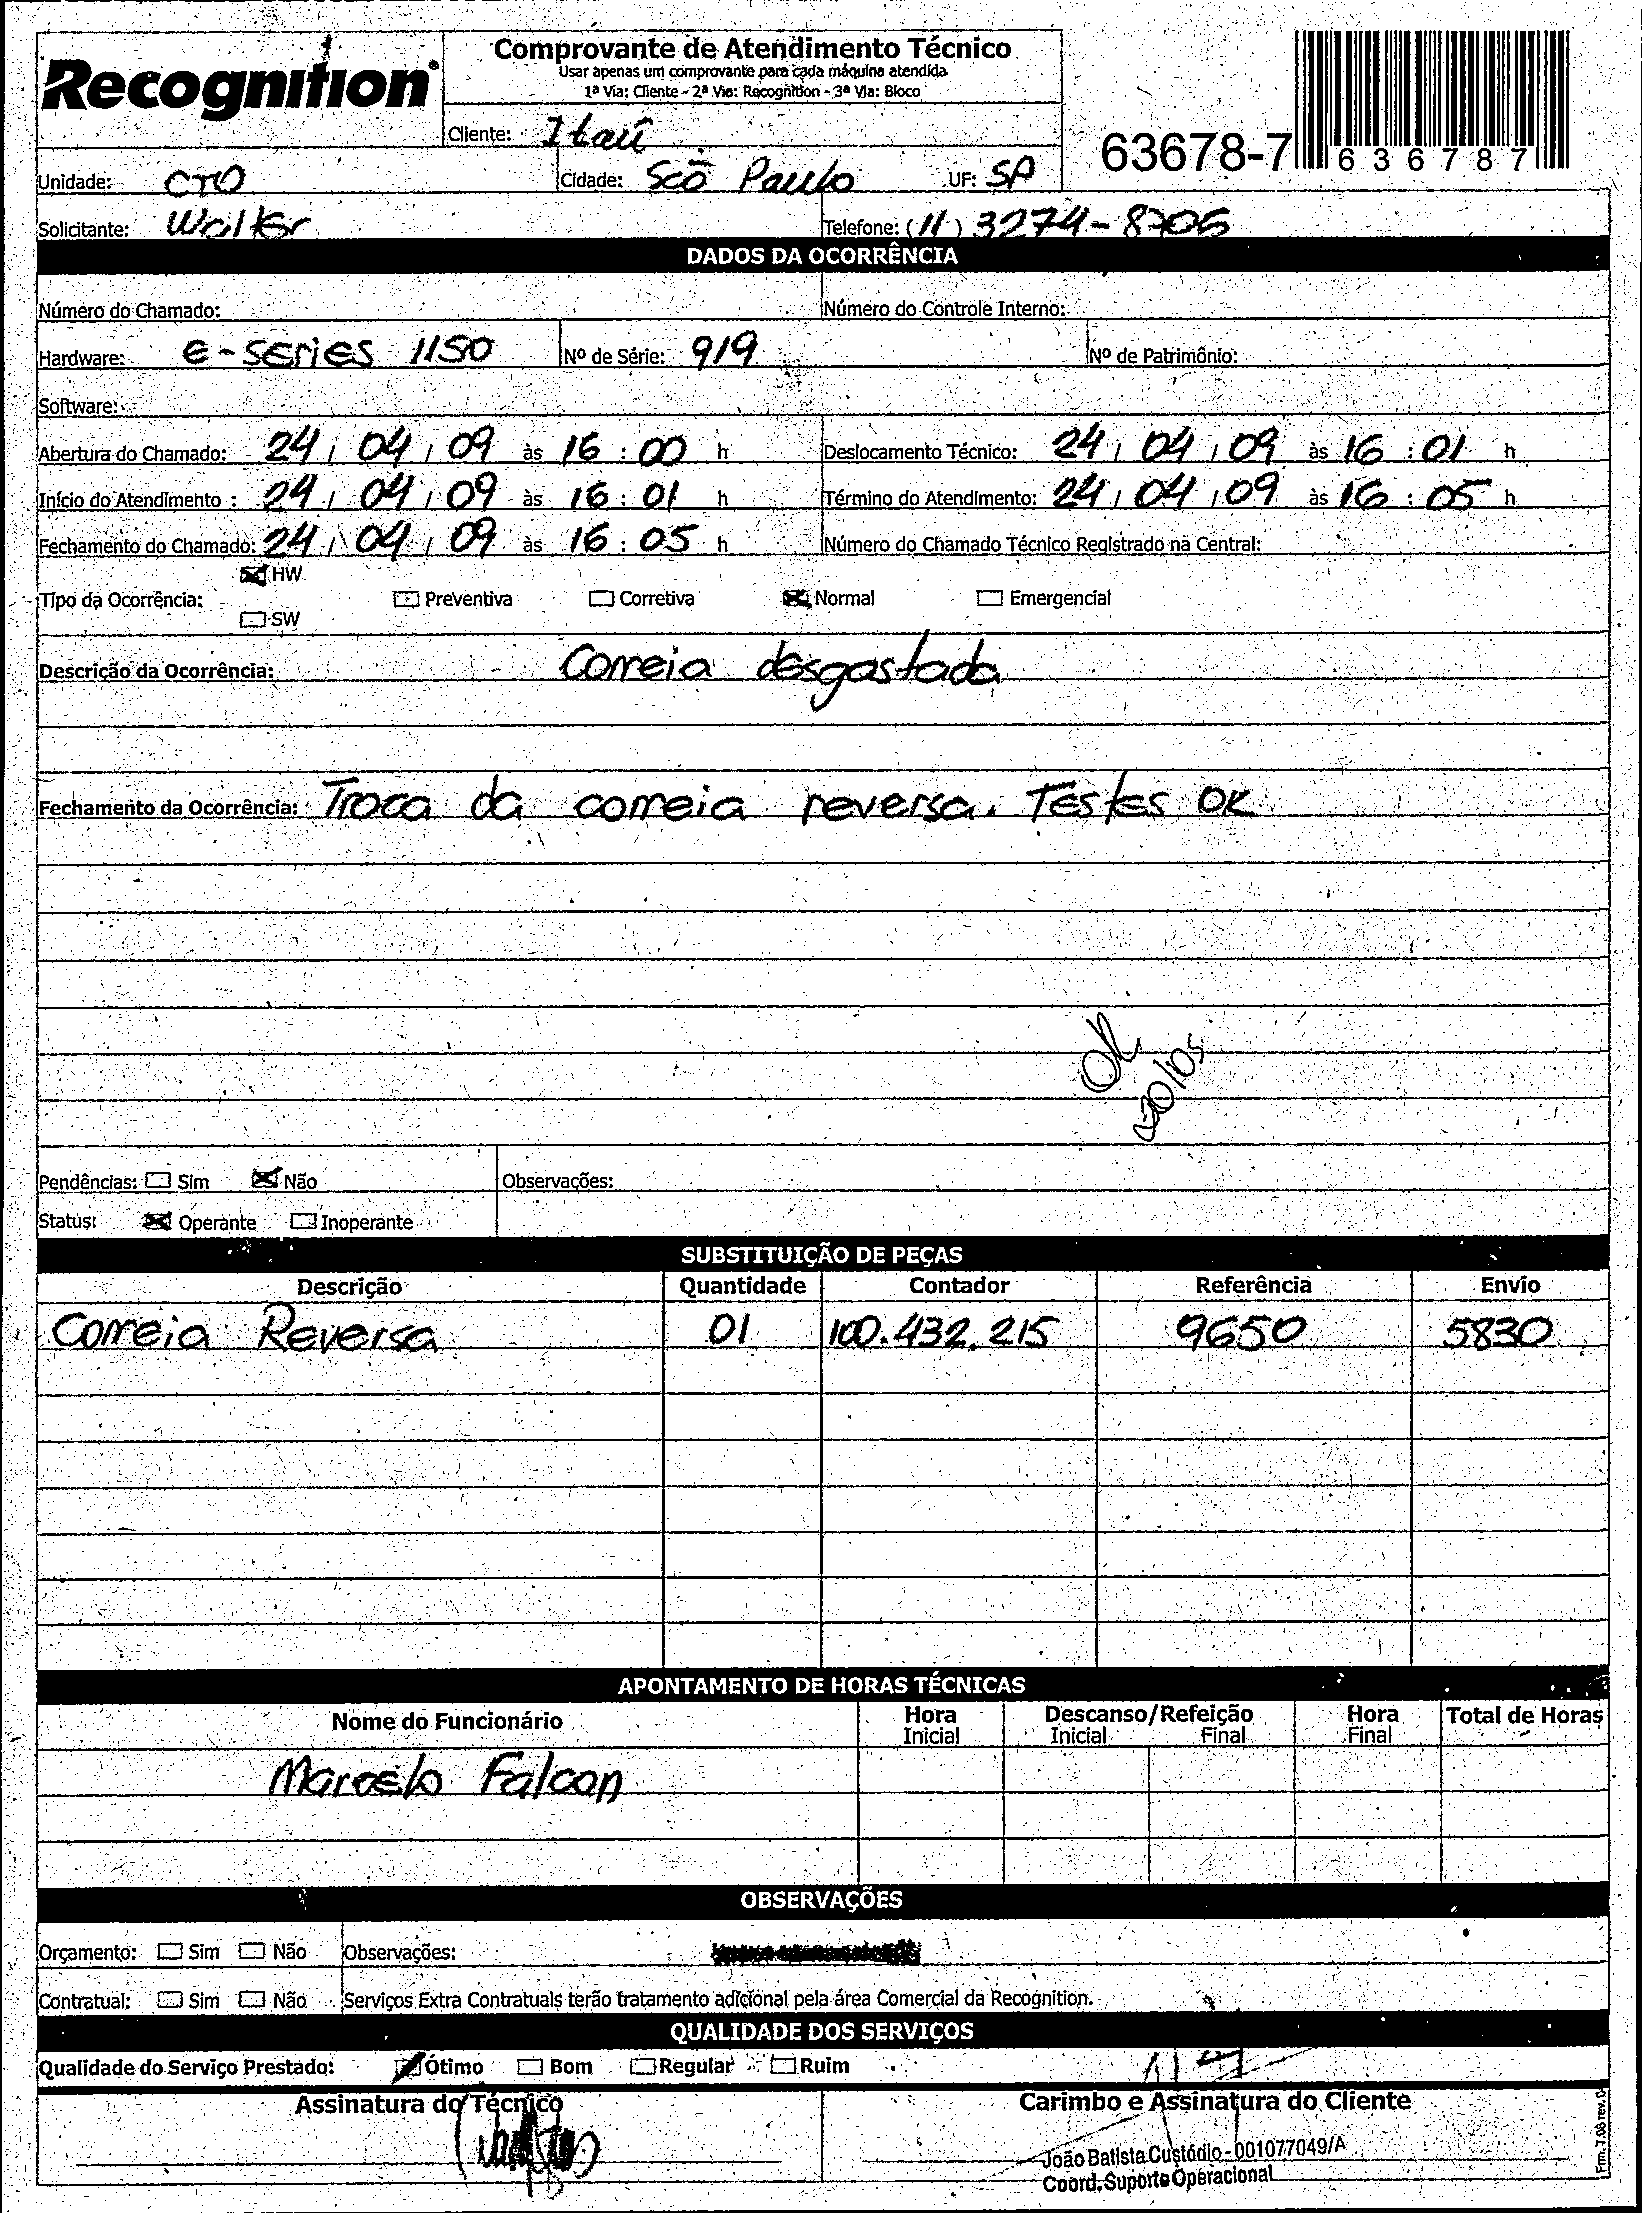 Recognition®
Comprovante de Atendimento Técnico
Usar apenas um comprovante para cada máquina atendida
1ª Via: Cliente - 2ª Via: Recognition - 3ª Via: Bloco
Cliente: Itaú
63678-7
6 3 6 7 8 7
Unidade: CTO Cidade: São Paulo UF: SP
Solicitante: Walter Telefone: (11) 3274-8705
DADOS DA OCORRÊNCIA
Número do Chamado: Número do Controle Interno:
Hardware: e-series 1150 Nº de Série: 919 Nº de Patrimônio:
Software:
Abertura do Chamado: 24 / 04 / 09 às 16 : 00 h Deslocamento Técnico: 24 / 04 / 09 às 16 : 01 h
Início do Atendimento : 24 / 04 / 09 às 16 : 01 h Término do Atendimento: 24 / 04 / 09 às 16 : 05 h
Fechamento do Chamado: 24 / 04 / 09 às 16 : 05 h Número do Chamado Técnico Registrado na Central:
HW
Tipo da Ocorrência: Preventiva Corretiva Normal Emergencial
SW
Descrição da Ocorrência: Correia desgastada
Fechamento da Ocorrência: Troca da correia reversa. Testes OK
OK
20/05
Pendências: Sim Não Observações:
Status: Operante Inoperante
SUBSTITUIÇÃO DE PEÇAS
Descrição Quantidade Contador Referência Envio
Correia Reversa 01 100.432.215 9650 5830
APONTAMENTO DE HORAS TÉCNICAS
Nome do Funcionário Hora Inicial Descanso/Refeição Inicial Final Hora Final Total de Horas
Marcelo Falcon
OBSERVAÇÕES
Orçamento: Sim Não Observações:
Contratual: Sim Não Serviços Extra Contratuais terão tratamento adicional pela área Comercial da Recognition.
QUALIDADE DOS SERVIÇOS
Qualidade do Serviço Prestado: Ótimo Bom Regular Ruim
Assinatura do Técnico Carimbo e Assinatura do Cliente
João Batista Custódio - 001077049/A
Coord. Suporte Operacional